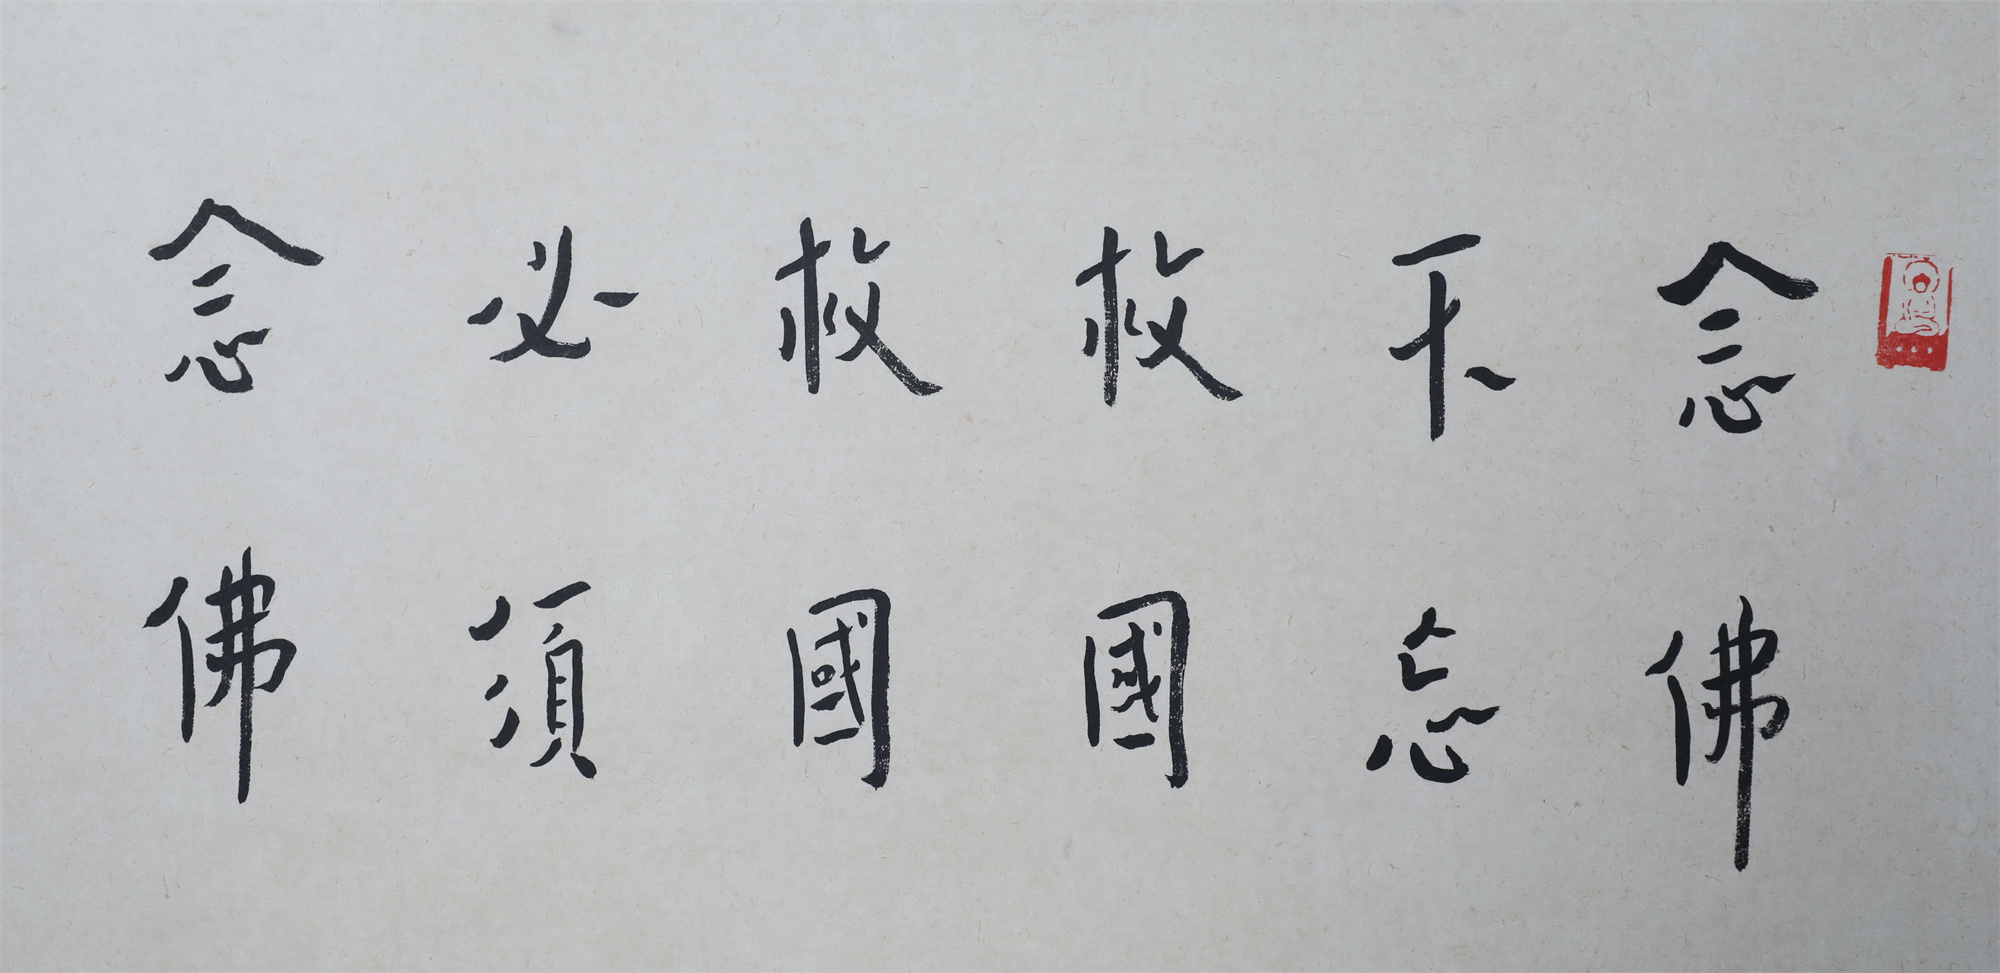 念佛
不忘
救國
救國
必須
念佛